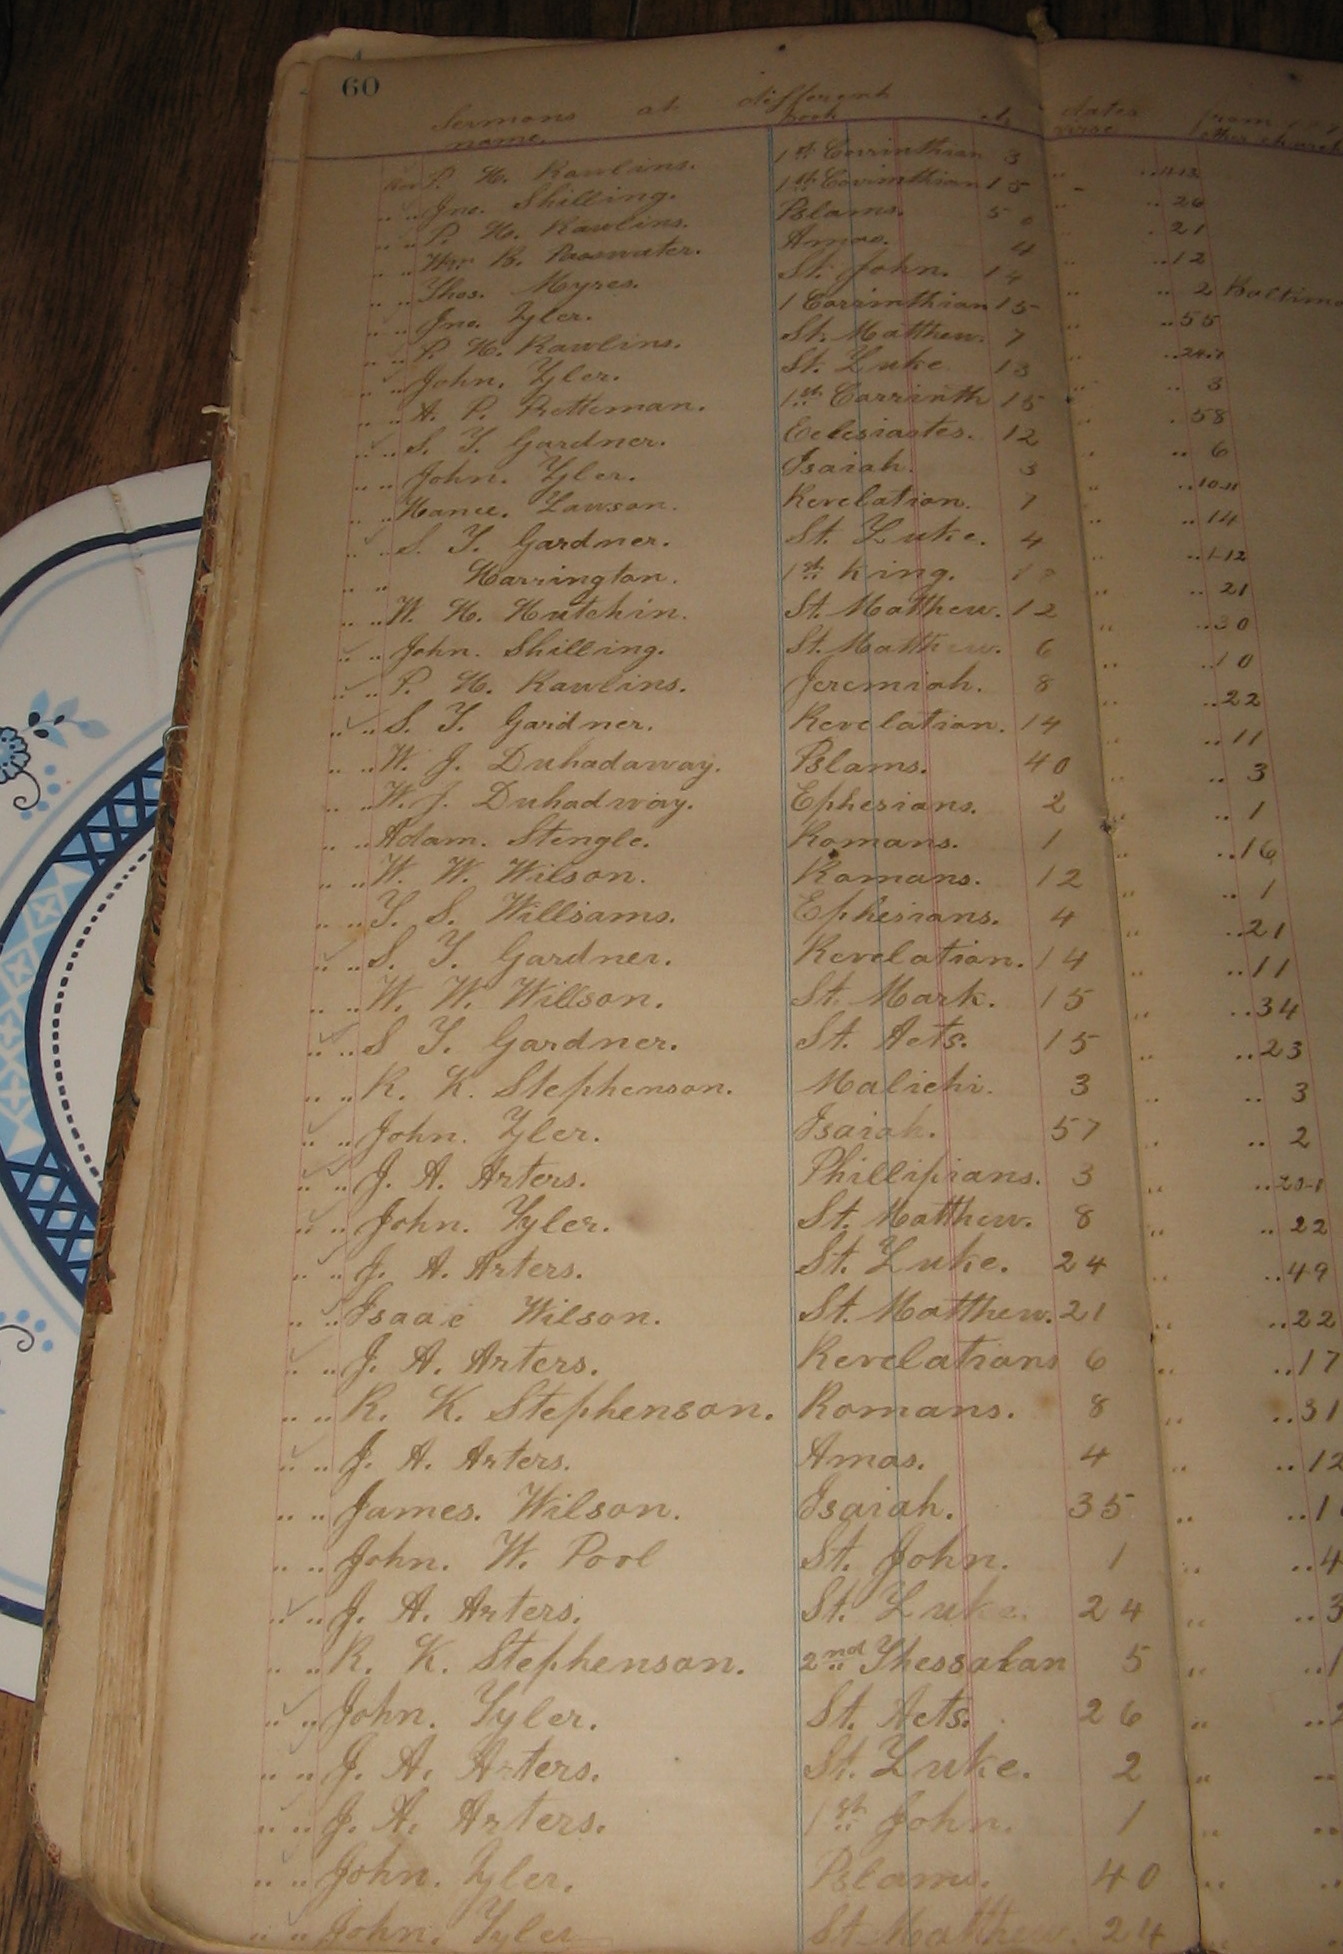 60
Sermons at different dates from
name. book ch verse other church
P. H. Rawlins. 1st Corrinthian 3 11-13
Jno. Shilling. 1st Corinthian 15 26
P. H. Rawlins. Pslams. 50 21
Wm B. Amos. 4 12
Thos. Myres. St. John. 14 2
Jno. Tyler. 1 Corrinthian 15 55
P. H. Rawlins. St. Matthew. 7
John. Tyler. St. Luke 13 3
A. P. Prettiman. 1st Corrinth 15 58
S. T. Gardner. Eclesiastes. 12 6
John. Tyler. Isaiah. 3 10-11
Hance. Lawson. Revelation. 7 14
S. T. Gardner. St. Luke. 4 1-12
Harrington. 1st King. 21
W. H. Hutchin. St. Matthew. 12 30
John. Shilling. St. Matthew. 6 10
P. H. Rawlins. Jeremiah. 8 22
S. T. Gardner. Revelation. 14 11
W. J. Duhadaway. Pslams. 40 3
W. J. Duhadway. Ephesians. 2 1
Adam. Stengle. Romans. 1 16
W. W. Wilson. Romans. 12 1
T. S. Williams. Ephesians. 4 21
S. T. Gardner. Revelation. 14 11
W. W. Willson. St. Mark. 15 34
S T. Gardner. St. Acts. 15 23
R. K. Stephenson. Malichi. 3 3
John. Tyler. Isaiah. 57 2
J. A. Arters. Phillipians. 3
John. Tyler. St. Matthew. 8 22
J. A. Arters. St. Luke. 24 49
Isaac Wilson. St. Matthew. 21 22
J. A. Arters. Revelations 6 17
R. K. Stephenson. Romans. 8 31
J. A. Arters. Amos. 4 12
James. Wilson. Isaiah. 35
John. W. Pool St. John. 1
J. A. Arters. St. Luke. 24
R. K. Stephenson. 2nd Thessalan 5
John. Tyler. St. Acts. 26
J. A. Arters. St. Luke. 2
J. A. Arters. 1st John. 1
John. Tyler. Pslams. 40
John. Tyler St. Matthew. 24